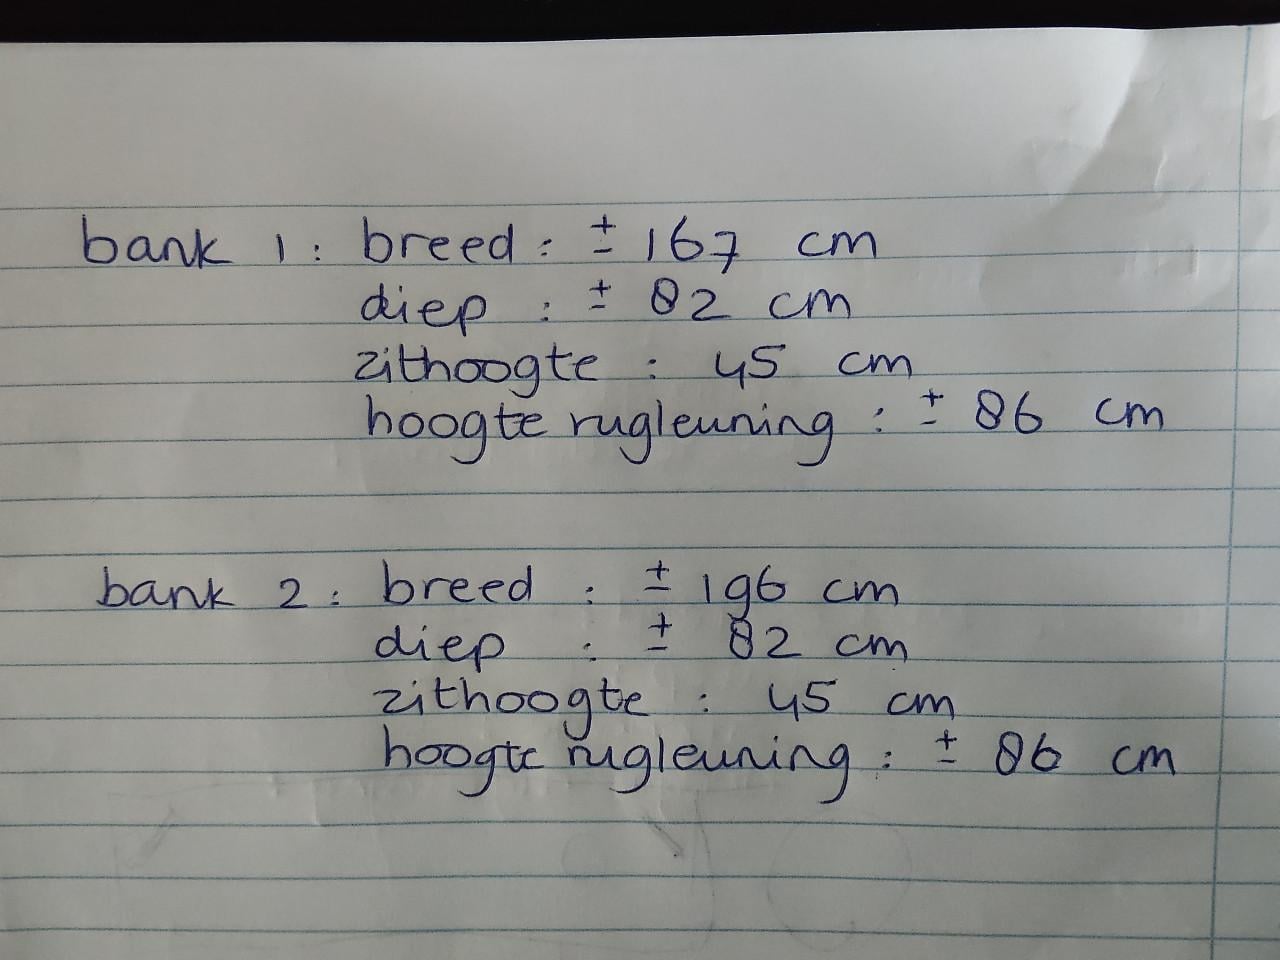 bank 1 : breed : ± 167 cm
diep : ± 82 cm
zithoogte : 45 cm
hoogte rugleuning : ± 86 cm
bank 2 : breed : ± 196 cm
diep : ± 82 cm
zithoogte : 45 cm
hoogte rugleuning : ± 86 cm